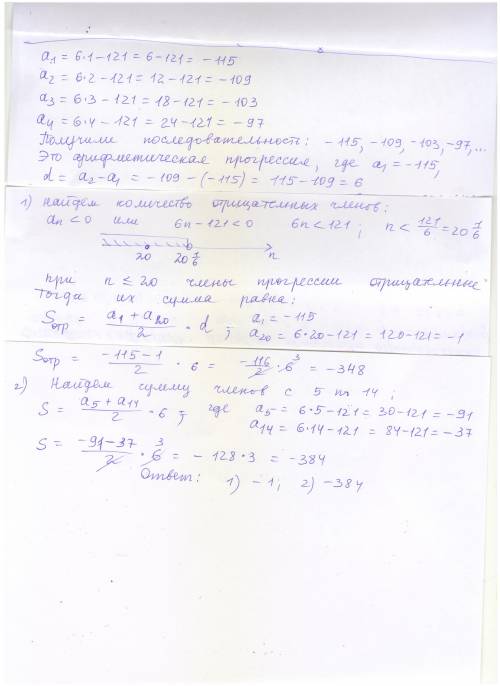 a₁ = 6·1 − 121 = 6 − 121 = − 115
a₂ = 6·2 − 121 = 12 − 121 = − 109
a₃ = 6·3 − 121 = 18 − 121 = − 103
a₄ = 6·4 − 121 = 24 − 121 = − 97
Получили последовательность: − 115, − 109, − 103, − 97, ...
Это арифметическая прогрессия, где a₁ = − 115,
d = a₂ − a₁ = − 109 − (− 115) = 115 − 109 = 6
1) Найдем количество отрицательных членов:
an < 0 или 6n − 121 < 0 6n < 121 ; n < 121/6 = 20 1/6
20 20 1/6 n
при n ≤ 20 члены прогрессии отрицательные
Тогда их сумма равна:
Sотр = (a₁ + a₂₀)/2 · d ; a₁ = − 115
a₂₀ = 6·20 − 121 = 120 − 121 = − 1
Sотр = (− 115 − 1)/2 · 6 = − 116/2 · 6 3 = − 348
2) Найдем сумму членов с 5 по 14 ;
S = (a₅ + a₁₄)/2 · 6 ; где a₅ = 6·5 − 121 = 30 − 121 = − 91
a₁₄ = 6·14 − 121 = 84 − 121 = − 37
S = (− 91 − 37)/2 · 6 3 = − 128 · 3 = − 384
Ответ: 1) − 1 ; 2) − 384